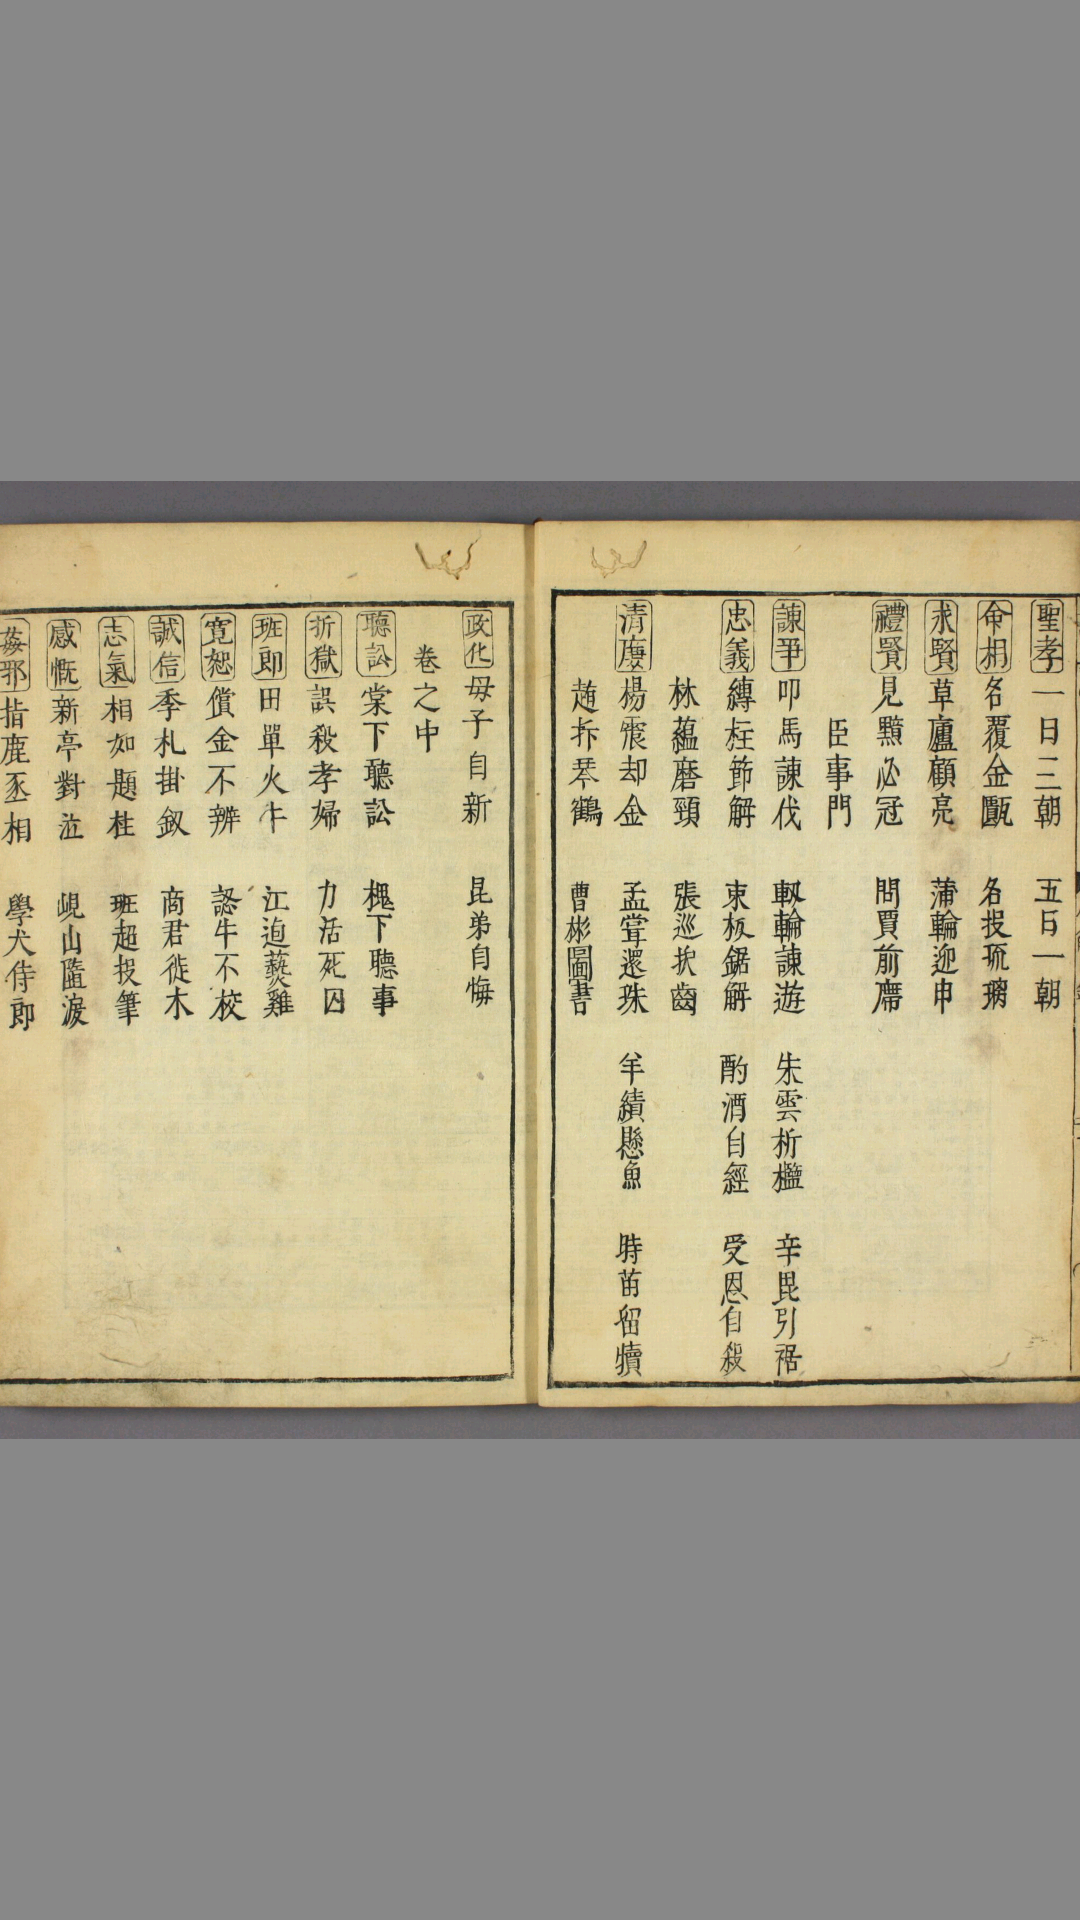 聖孝 一日三朝 五日一朝
命相 名覆金甌 名投琉璃
求賢 草廬顧亮 蒲輪迎申
禮賢 見黯必冠 問賈前席
臣事門
諫爭 叩馬諫伐 軔輪諫遊 朱雲折檻 辛毘引裾
忠義 縛柱節解 束板鋸解 酌酒自經 受恩自殺
林蘊磨頸 張巡抉齒
清慶 楊震却金 孟嘗還珠 羊續懸魚 時苗留犢
趙抃琴鶴 曹彬圖書
政化 母子自新 昆弟自悔
卷之中
聽訟 棠下聽訟 槐下聽事
折獄 誤殺孝婦 力活死囚
班郎 田單火牛 江逌爇雞
寬恕 償金不辨 認牛不校
誠信 季札掛劔 商君徙木
志氣 相如題柱 班超投筆
感慨 新亭對泣 峴山隨淚
姦邪 指鹿丞相 學犬侍郎